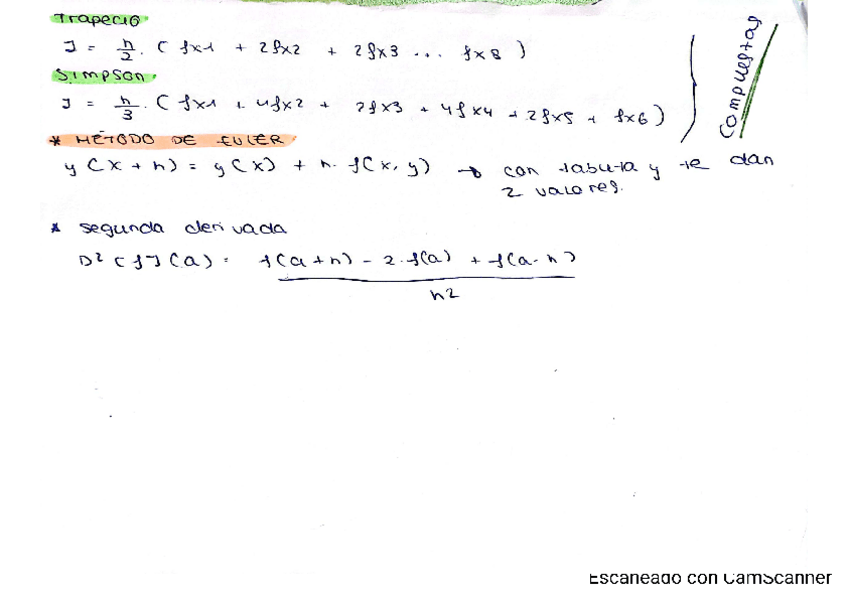 Trapecio
I = h/2 · ( fx1 + 2fx2 + 2fx3 ... fx8 )
Simpson
I = h/3 · ( fx1 + 4fx2 + 2fx3 + 4fx4 + 2fx5 + fx6 )
Compuestas
* MÉTODO DE EULER
y (x + h) = y(x) + h · f(x, y) → con tabulta y te dan
2 valores.
* segunda derivada
D² [f] (a) = f(a + h) - 2 · f(a) + f(a - h)
h2
Escaneado con CamScanner